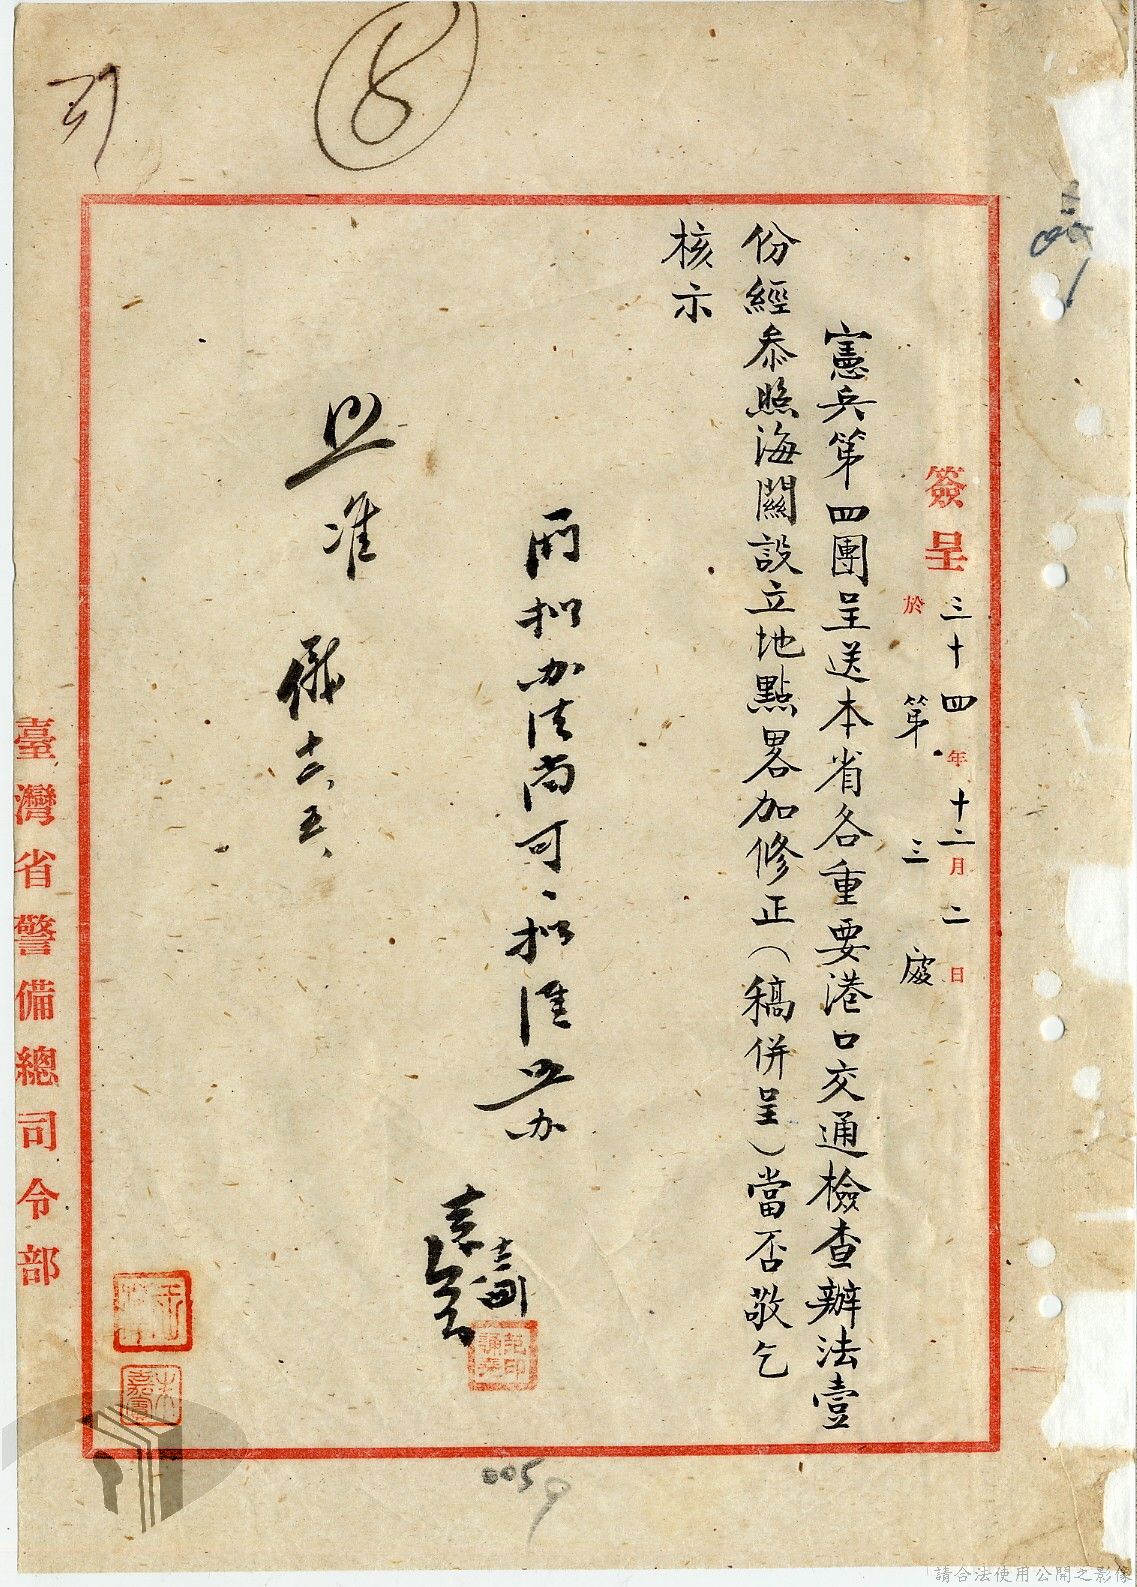 簽呈 三十四年十二月二日
於 第三處
憲兵第四團呈送本省各重要港口交通檢查辦法壹
份經參照海關設立地點畧加修正（稿併呈）當否敬乞
核示
所拟办法尚可、拟准照办
照准
十二、五、
臺灣省警備總司令部
0059
請合法使用公開之影像